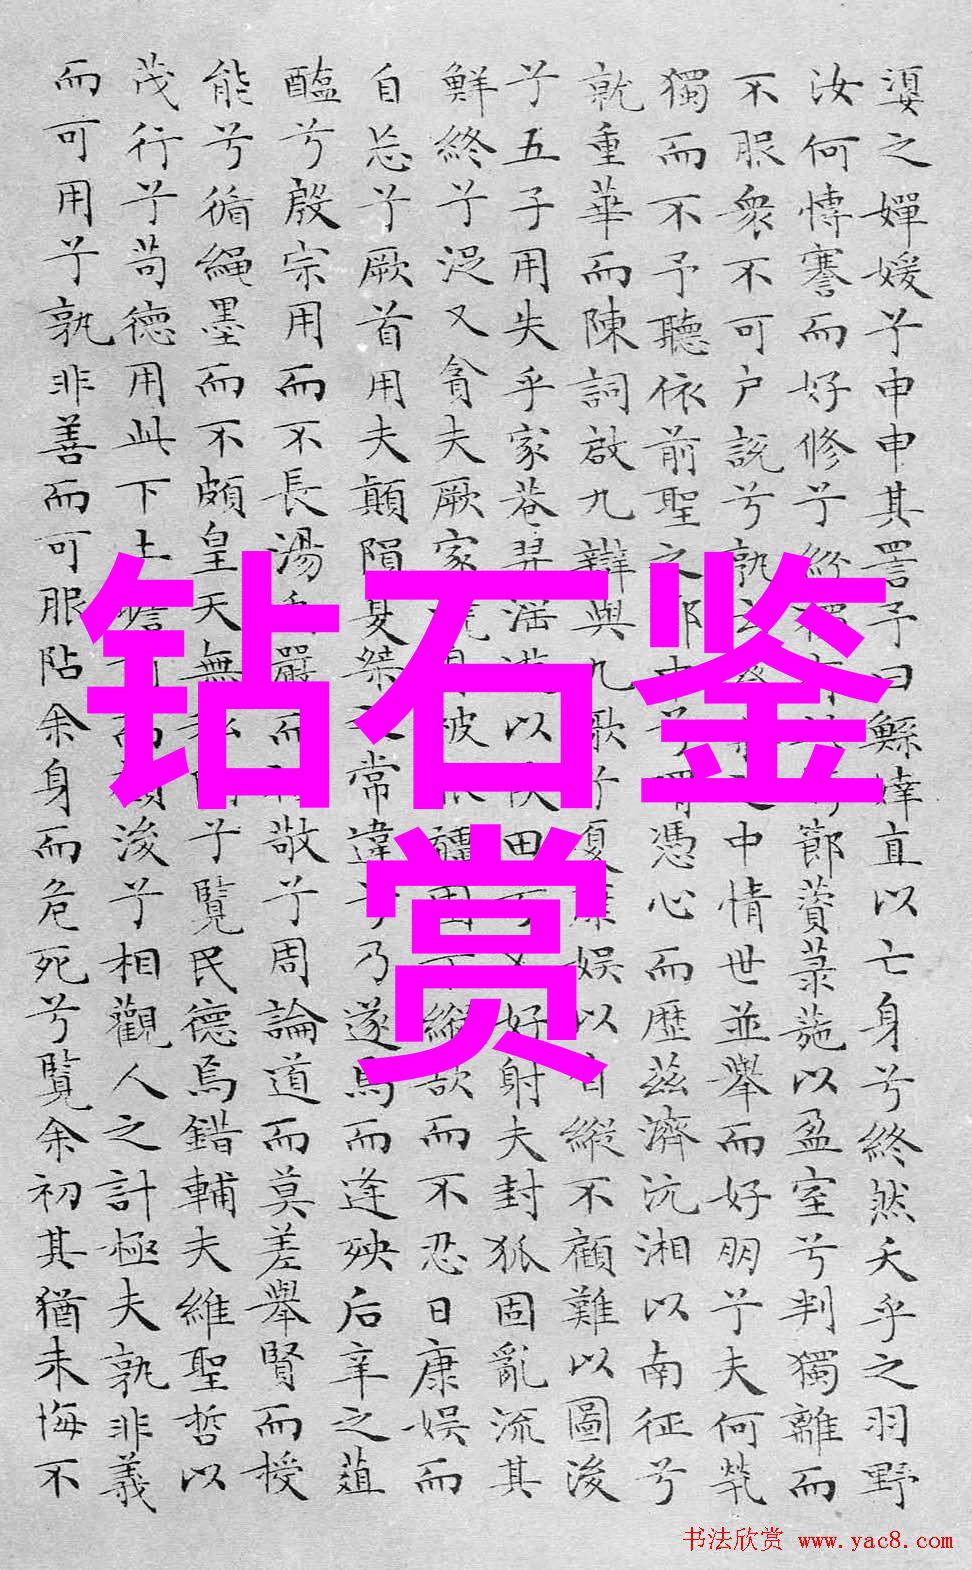 钻石鉴
赏
嬃之嬋媛兮申申其詈予曰鯀婞直以亡身兮終然夭乎之羽野
汝何博謇而好修兮紛獨有節薋菉葹以盈室兮判獨離而
不服眾不可户說兮孰中情世並舉而好朋兮夫何煢
獨而不予聽依前聖之中兮喟憑心而歷茲濟沅湘以南征兮
就重華而陳詞啟九辯與九歌兮夏康娛以自縱不顧難以圖後
兮五子用失乎家巷羿淫以田又好射夫封狐固亂流其
鮮終兮浞又貪夫厥家被服圉縱欲而不忍日康娛而
自忘兮厥首用夫顛隕夏桀之常違兮乃遂焉而逢殃后辛之菹
醢兮殷宗用而不長湯嚴而敬兮周論道而莫差舉賢而授
能兮循繩墨而不頗皇天無私兮覽民德焉錯輔夫維聖哲以
茂行兮苟德用此下土而顧後兮相觀人之計極夫孰非義
而可用兮孰非善而可服阽余身而危死兮覽余初其猶未悔不
书法欣赏 www.yac8.com